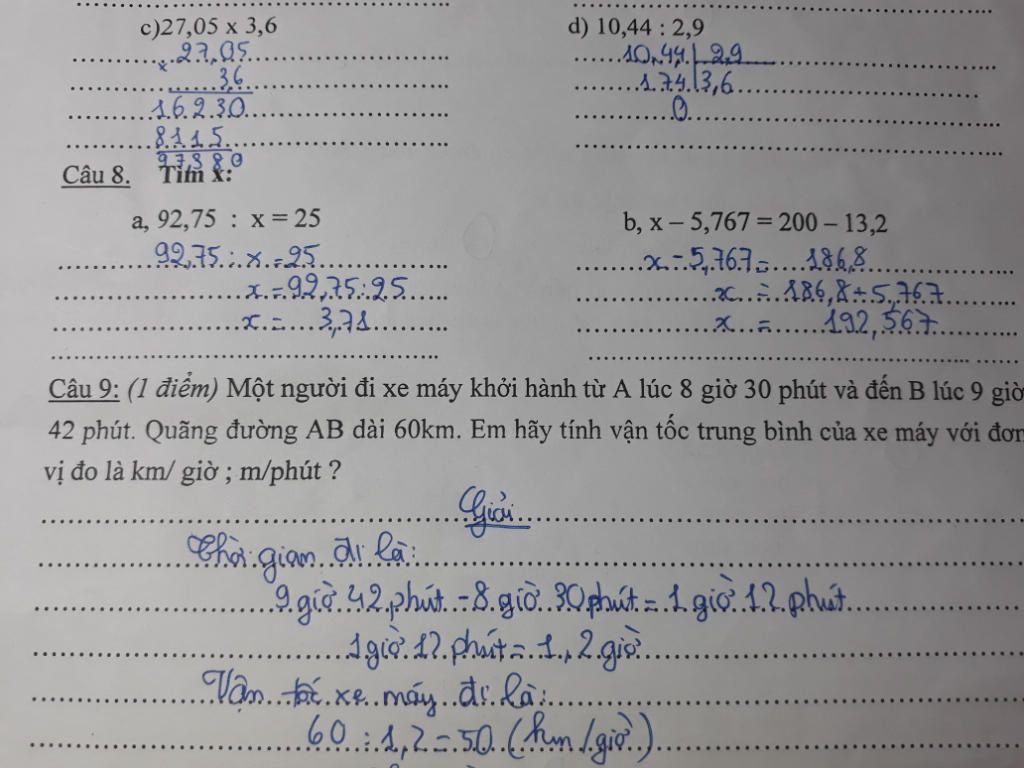 c)27,05 x 3,6
d) 10,44 : 2,9
27,05
x
3,6
16230
8115
97380
10,44 2,9
1 74 3,6
0
Câu 8. Tìm x:
a, 92,75 : x = 25
b, x – 5,767 = 200 – 13,2
92,75 : x = 25
x = 92,75 : 25
x = 3,71
x - 5,767 = 186,8
x = 186,8 + 5,767
x = 192,567
Câu 9: (1 điểm) Một người đi xe máy khởi hành từ A lúc 8 giờ 30 phút và đến B lúc 9 giờ
42 phút. Quãng đường AB dài 60km. Em hãy tính vận tốc trung bình của xe máy với đơn
vị đo là km/ giờ ; m/phút ?
Giải
Thời gian đi là:
9 giờ 42 phút - 8 giờ 30 phút = 1 giờ 12 phút
1 giờ 12 phút = 1,2 giờ
Vận tốc xe máy đi là:
60 : 1,2 = 50 (km/giờ)